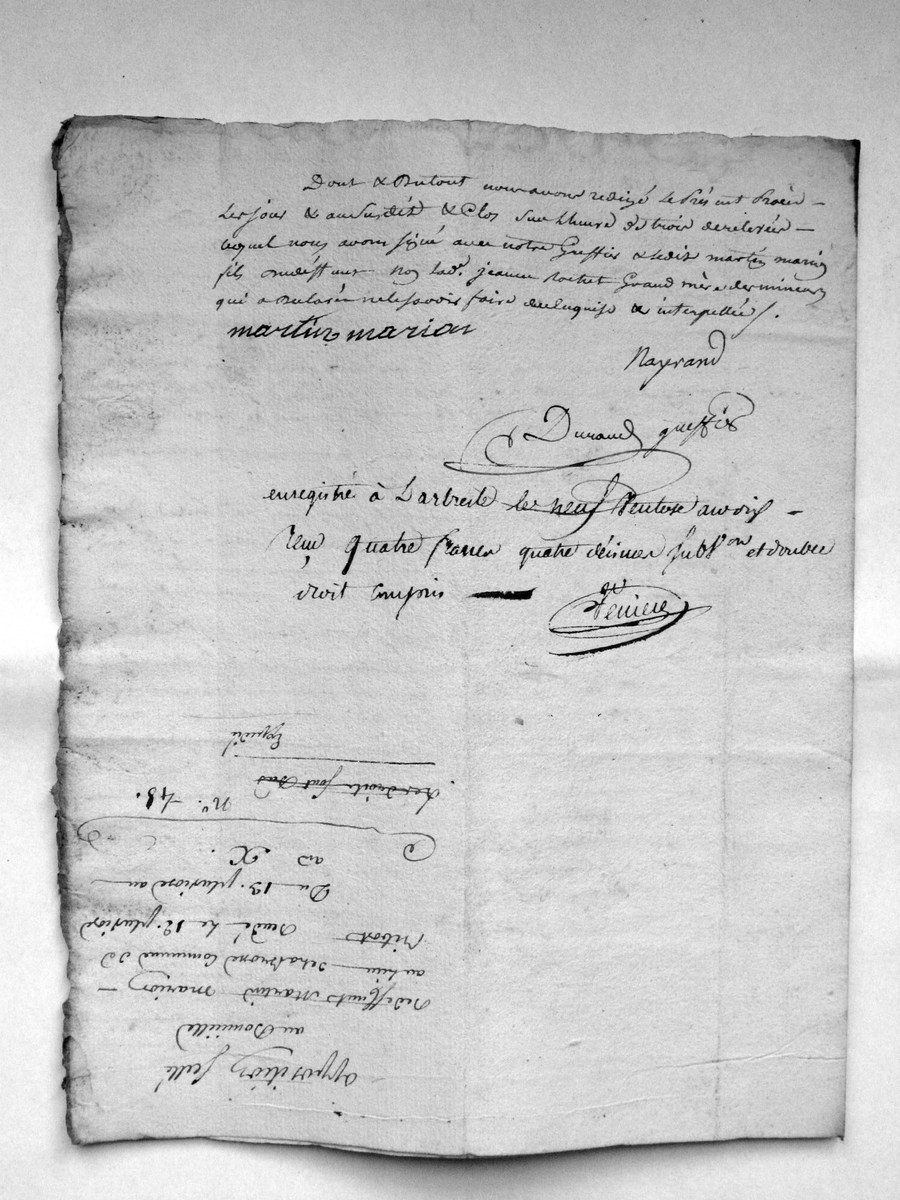 Dont & du tout nous avons redigé le présent procès –
les jour & an susdits & clos sur l'heure de trois de relevée –
lequel nous avons signé avec notre Greffier & ledit martin marion
fils du déffunt non lad.e jeanne rochet Grand mère des mineurs
qui a déclaré ne le savoir faire de ce requise & interpellée /.
martin marion
Nayrand
Durand greffier
enregistré à Larbresle le neuf Ventose an dix –
reçu quatre francs quatre décimes subv.on et double
droit compris
apposition scellé
au Domicille
de deffunt Martin marion –
au lieu de commune de
Bibost le 12. pluviose
Du 13. pluviose an
an X.
N.o 48.
les droits sont dus
Expedié